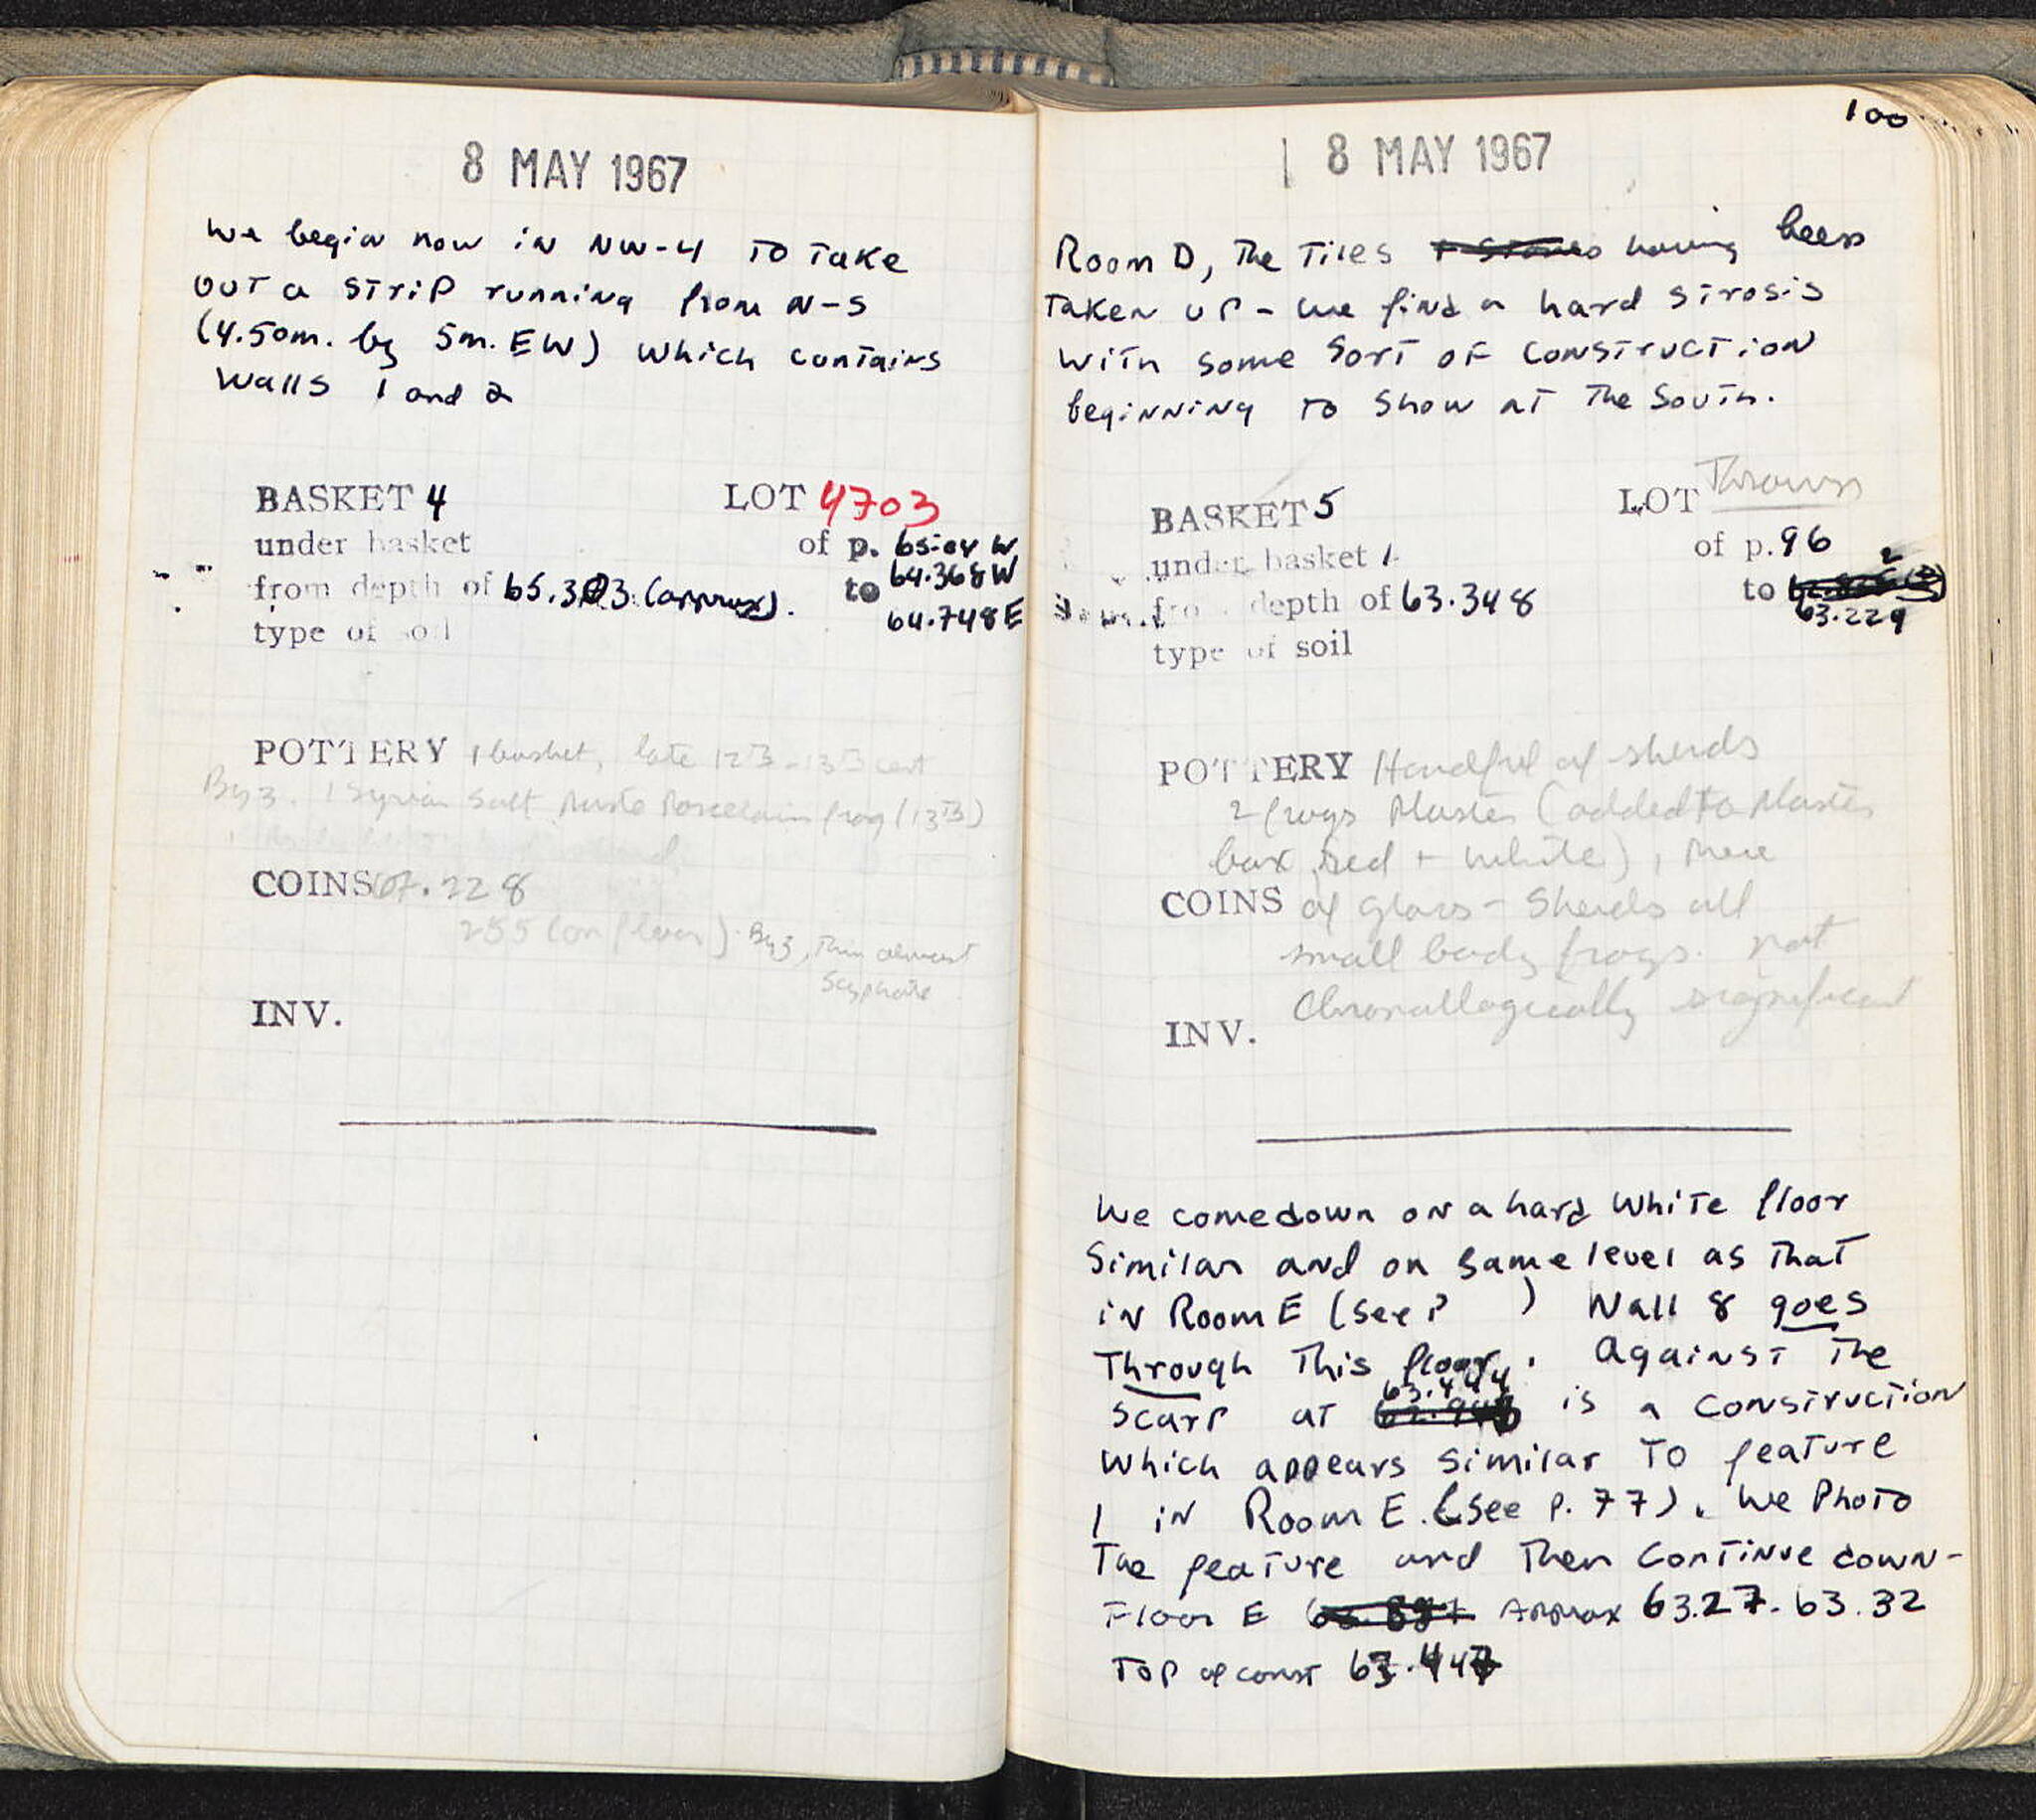 8 MAY 1967
We begin now in NW-4 to take
out a strip running from N-S
(4.50m. by 5m. EW) which contains
Walls 1 and 2
BASKET 4 LOT 4703
under basket of p.
from depth of (approx). to 64.368W
64.748E
type of soil
POTTERY 1 basket, late 12th-13th cent
Byz. 1 Syrian Salt Paste Porcelain frag (13th)
COINS 67.228
255 (on floor) Byz, Thin almost
Scyphate
INV.
100
8 MAY 1967
Room D, The Tiles + stones having been
Taken up - we find a hard strosis
With some sort of construction
beginning to show at the South.
BASKET 5 LOT Thrown
under basket 1 of p. 96
from depth of 63.348 to
63.229
type of soil
POTTERY Handful of sherds
2 frags Plaster (added to Plaster
box red + white), Piece
COINS of glass - Sherds all
small body frags. not
Chronollogically significant
INV.
We come down on a hard White floor
Similar and on same level as that
in Room E (see P ) Wall 8 goes
Through this floor. Against the
63.444
scarp at is a construction
which appears similar to feature
1 in Room E. (see p. 77). We Photo
The feature and then continue down-
Floor E Approx 63.27-63.32
Top of const